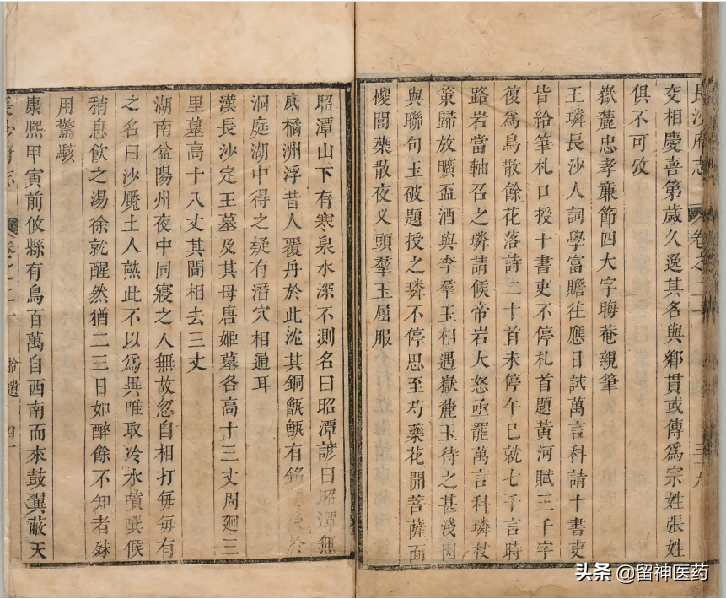 長沙府志
卷之二十
三十九
交相慶喜第歲久逸其名與鄉貫或傳爲宗姓張姓
俱不可攷
嶽麓忠孝亷節四大字晦菴親筆
王璘長沙人詞學富贍往應日試萬言科請十書吏
皆給筆札口授十書吏不停札首題黃河賦三千字
復爲鳥散餘花落詩二十首未停午已就七千言時
路岩當軸召之璘請候帝岩大怒亟罷萬言科璘杖
策歸放曠盃酒與李羣玉相遇嶽麓玉待之甚淺因
與聯句玉破題授之璘不停思至芍藥花開菩薩面
椶閭葉散夜叉頭羣玉屈服
昭潭山下有寒泉水深不測名曰昭潭諺曰昭潭無
底橘洲浮昔人覆舟於此沈其銅甑甑有銘 於
洞庭湖中得之疑有潛穴相通耳
漢長沙定王墓及其母唐姬墓各高十三丈周廻三
里墓高十八丈其間相去三丈
湖南益陽州夜中同寢之人無故忽自相打每每有
之名曰沙魘土人熟此不以爲異唯取冷水噴噀候
稍息飲之湯徐就醒然猶二三日如醉餘不知者殊
用驚駭
康熙甲寅前攸縣有鳥百萬自西南而來鼓翼蔽天
長沙府志
拾遺
四十
头条 @留神医药